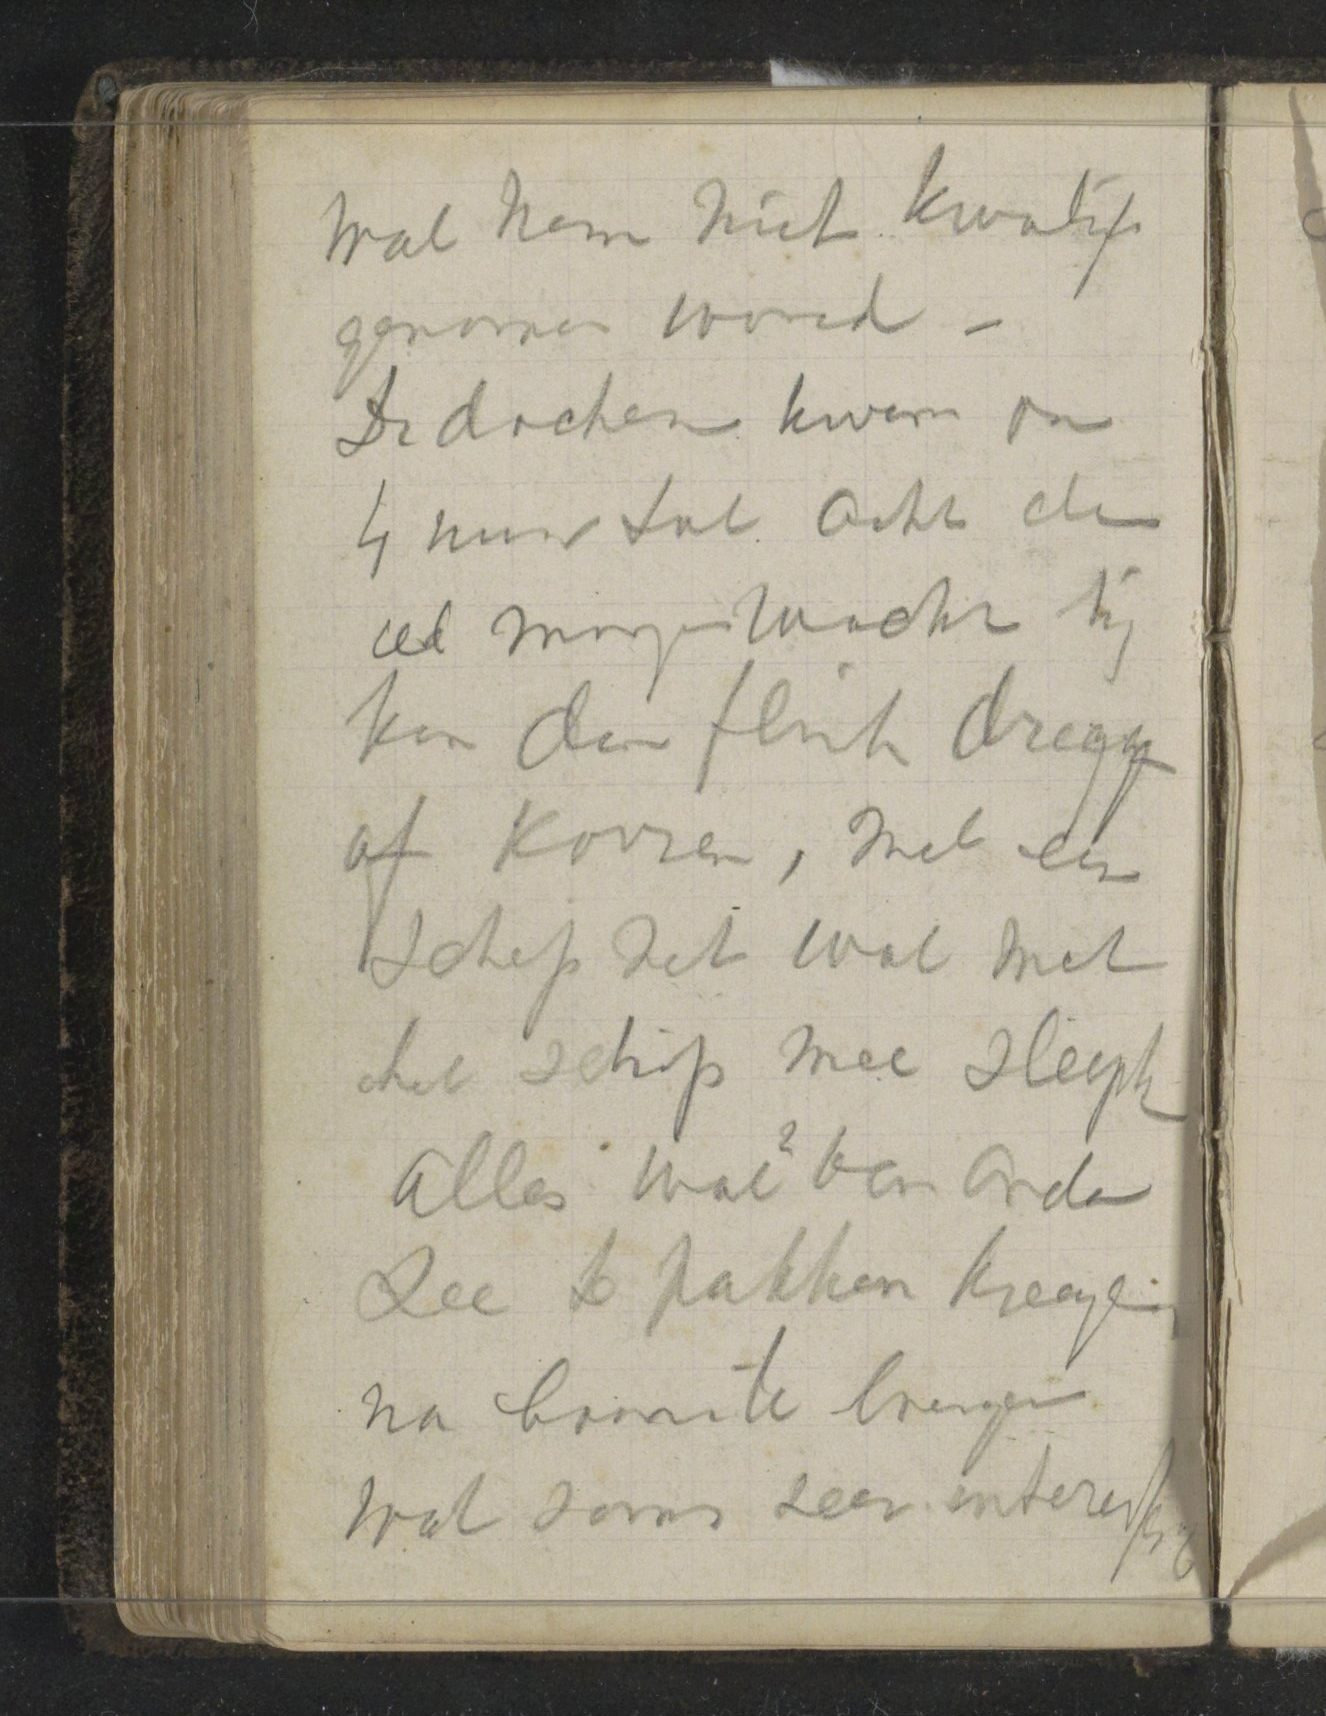 wat hem niet kwalijk
genomen word -
De dochen kwam om
4 uur tot acht de
morgenwacht hij
kan dan flink dregge
of korren, met een
schep net wat met
het schip mee sleept
Alles wat van onder
Zee te pakken kreegen
na boven te brengen
wat soms zeer interess